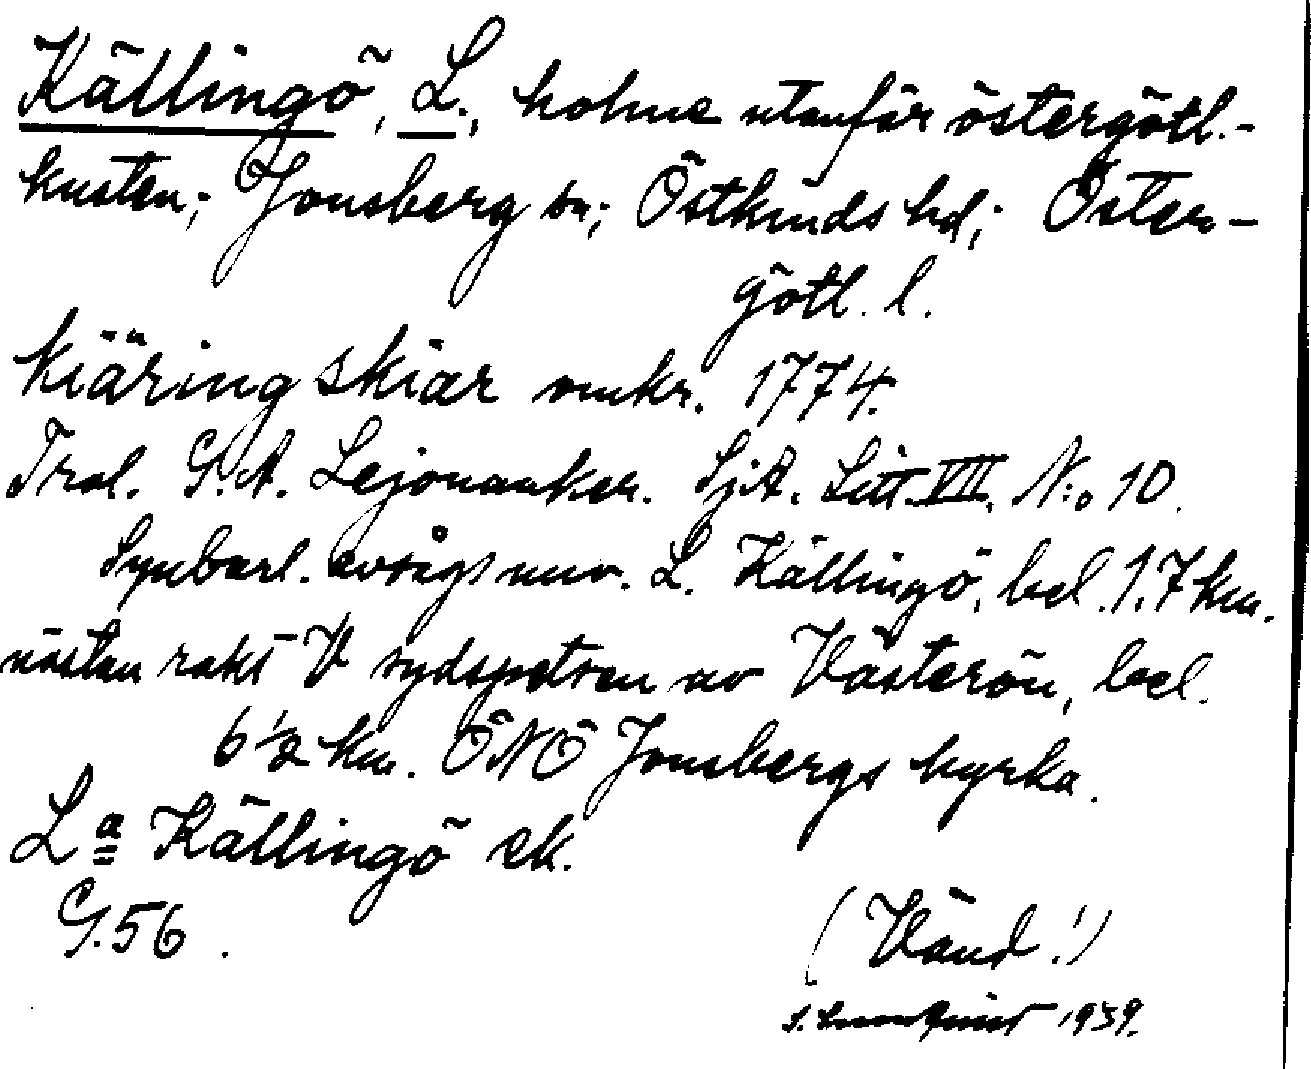 Källingö, L., holme utanför östergötl.-
kusten; Jonsberg sn; Östkinds hd; Öster-
götl. l.
kiäring skiär omkr. 1774.
Trol. G. A. Lejonanker. SjA. Litt. VII. N:o 10.
Synbarl. avsågs nuv. L. Källingö, bel. 1,7 km.
nästan rakt V sydspetsen av Västerön, bel.
6 1/2 km. ÖNÖ Jonsbergs kyrka.
La Källingö ek.
G. 56.
(Vänd!)
1939.